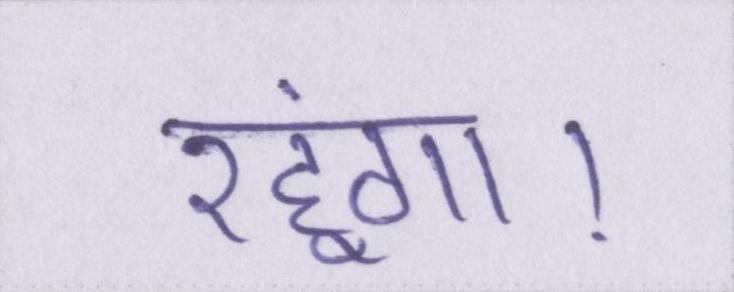 रहूंगा!